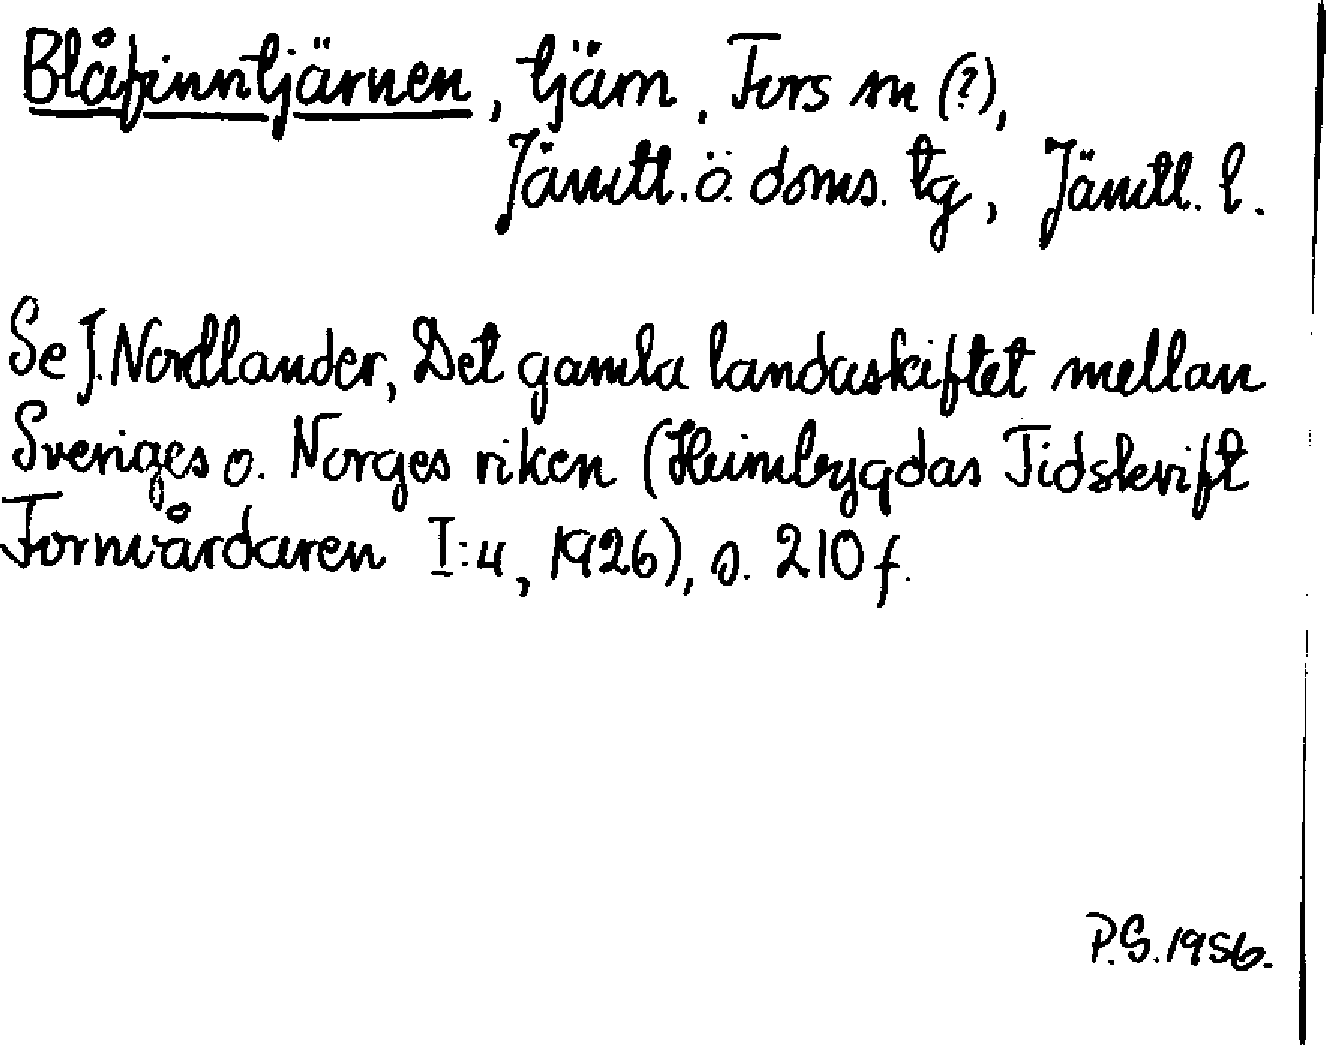 Blåfinntjärnen, tjärn, Fors sn (?),
Jämtl. ö. doms. tg, Jämtl. l.
Se J. Nordlander, Det gamla landaskiftet mellan
Sveriges o. Norges riken (Heimbygdas Tidskrift
Fornvårdaren I:4, 1926), s. 210 f.
P.S. 1956.